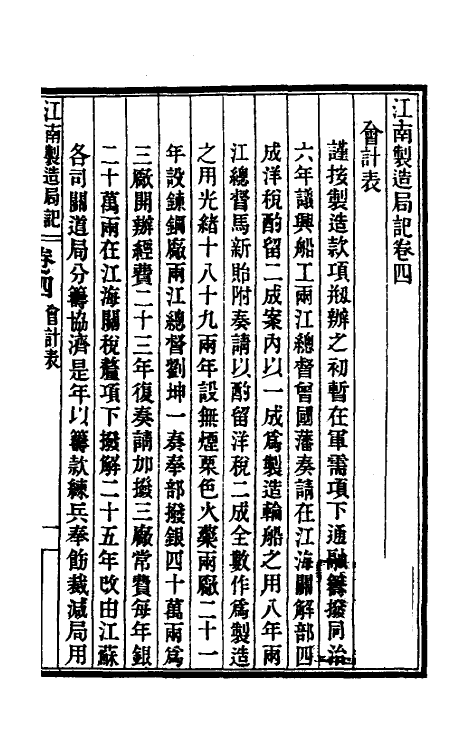 江南製造局記卷四
會計表
謹按製造款項剏辦之初暫在軍需項下通融籌撥同治
六年議興船工兩江總督曾國藩奏請在江海關解部四
成洋稅酌留二成案內以一成爲製造輪船之用八年兩
江總督馬新貽附奏請以酌留洋稅二成全數作爲製造
之用光緒十八十九兩年設無煙栗色火藥兩廠二十一
年設鍊鋼廠兩江總督劉坤一奏奉部撥銀四十萬兩爲
三廠開辦經費二十三年復奏請加撥三廠常費每年銀
二十萬兩在江海關稅釐項下撥解二十五年改由江蘇
各司關道局分籌協濟是年以籌款練兵奉飭裁減局用
江南製造局記 卷四 會計表 一